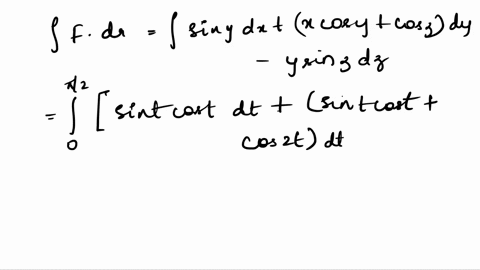 ∫ F. dr = ∫ siny dx + (x cosy + cosz) dy
− y sinz dz
= ∫₀^π/2 [ sint cost dt + (sint cost +
cos2t) dt